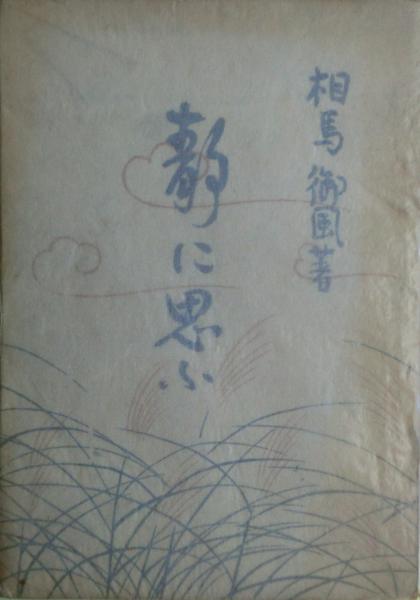 相馬御風著
静に思ふ